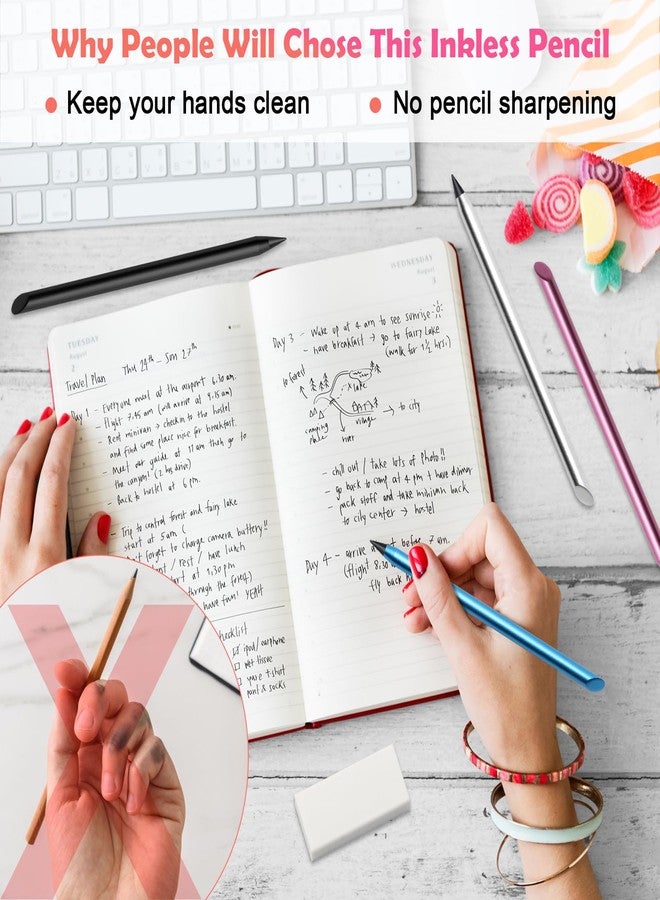 Why People Will Chose This Inkless Pencil
Keep your hands clean
No pencil sharpening
TUESDAY
August
2
Travel Plan Thu 24th - Sun 27th
Day 1 - Everyone meet at the airport 6.30 am.
- Flight 7.45 am (will arrive at 9.15 am)
- Rent minivan > checkin to the hostel
and find some place nice for breakfast.
- Meet our guide at 11 am then go to
the canyon! (2 hrs drive)
- Back to hostel at 6 pm.
- Trip to central forest and fairy lake
start at 5 am (
forget to charge camera battery!!
/ rest / have lunch
at 1.30 pm
through the forest)
have fun! YEAH
checklist
ipod / earphone
wet tissue
t-shirt
& socks
WEDNESDAY
August
3
Day 3 - Wake up at 4 am to see sunrise
- have breakfast → go to fairy lake
(walk for 1 1/2 hrs)
to forest
lake
camping place
river
village
→ to city
- chill out / take lots of photo!!
- go back to camp at 4 pm & have dinner
- pack stuff and take minivan back
to city center → hostel
Day 4 - arrive at before 7 am.
(flight 8.30
fly back